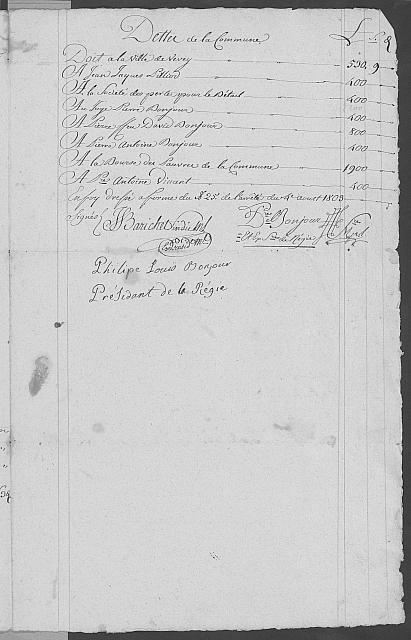 Dettes de la Commune
Doit a la Ville de Vevey 530, 9
A Jean Jaques 400
A la Societé des pertes pour le Bétail 400
Au Juge Pierre Bonjour 400
A Pierre ffeu David Bonjour 800
A Pierre Antoine Bonjour 400
A la Bourse des Pauvres de la Commune 1900
A Pre Antoine Vincent 400
En foy dressé a forme du § 25 de l'arreté du 4e aoust 1803
Signés
Bonjour
de Régie
Philipe Louis Bonjour
Présidant de la Régie